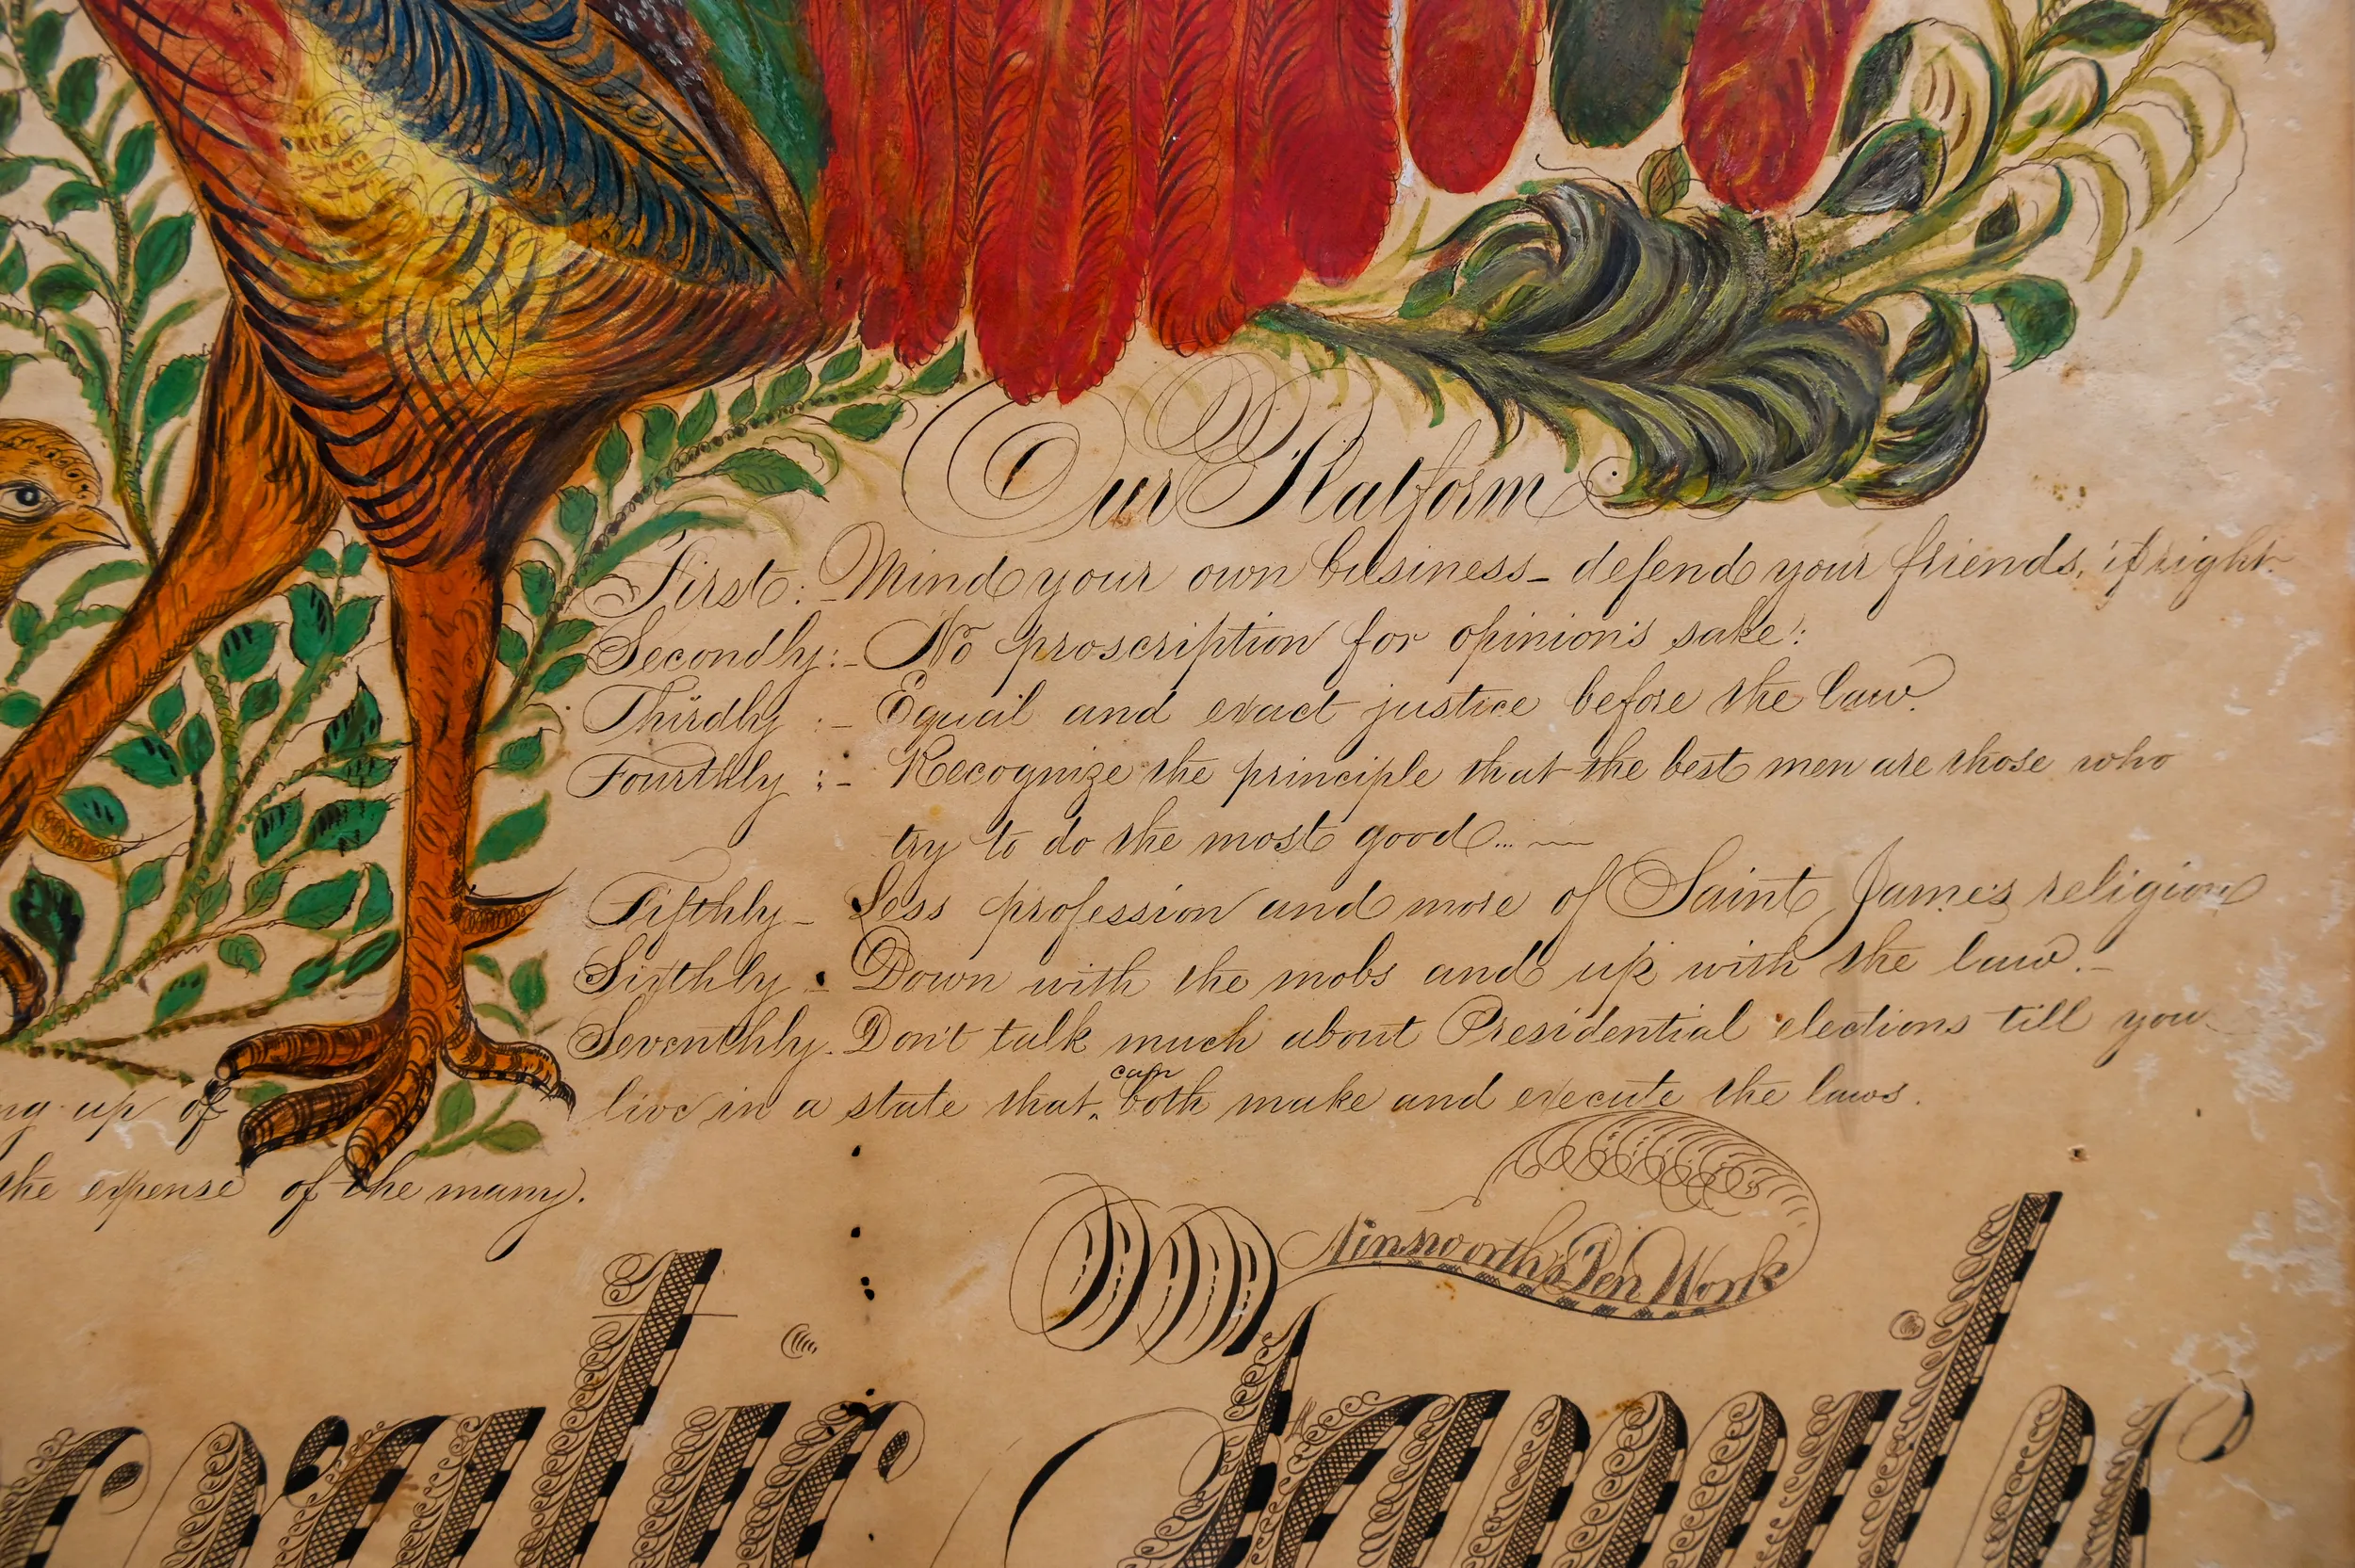 Our Platform
First:- Mind your own business - defend your friends, if right.
Secondly:- No proscription for opinion's sake:
Thirdly :- Equal and exact justice before the law.
Fourthly :- Recognize the principle that the best men are those who
try to do the most good...
Fifthly - Less profession and more of Saint James religion
Sixthly :- Down with the mobs and up with the law.-
Seventhly - Don't talk much about Presidential elections till you
live in a state that can both make and execute the laws.
up of
the expense of the many.
Ainsworth's Pen Work